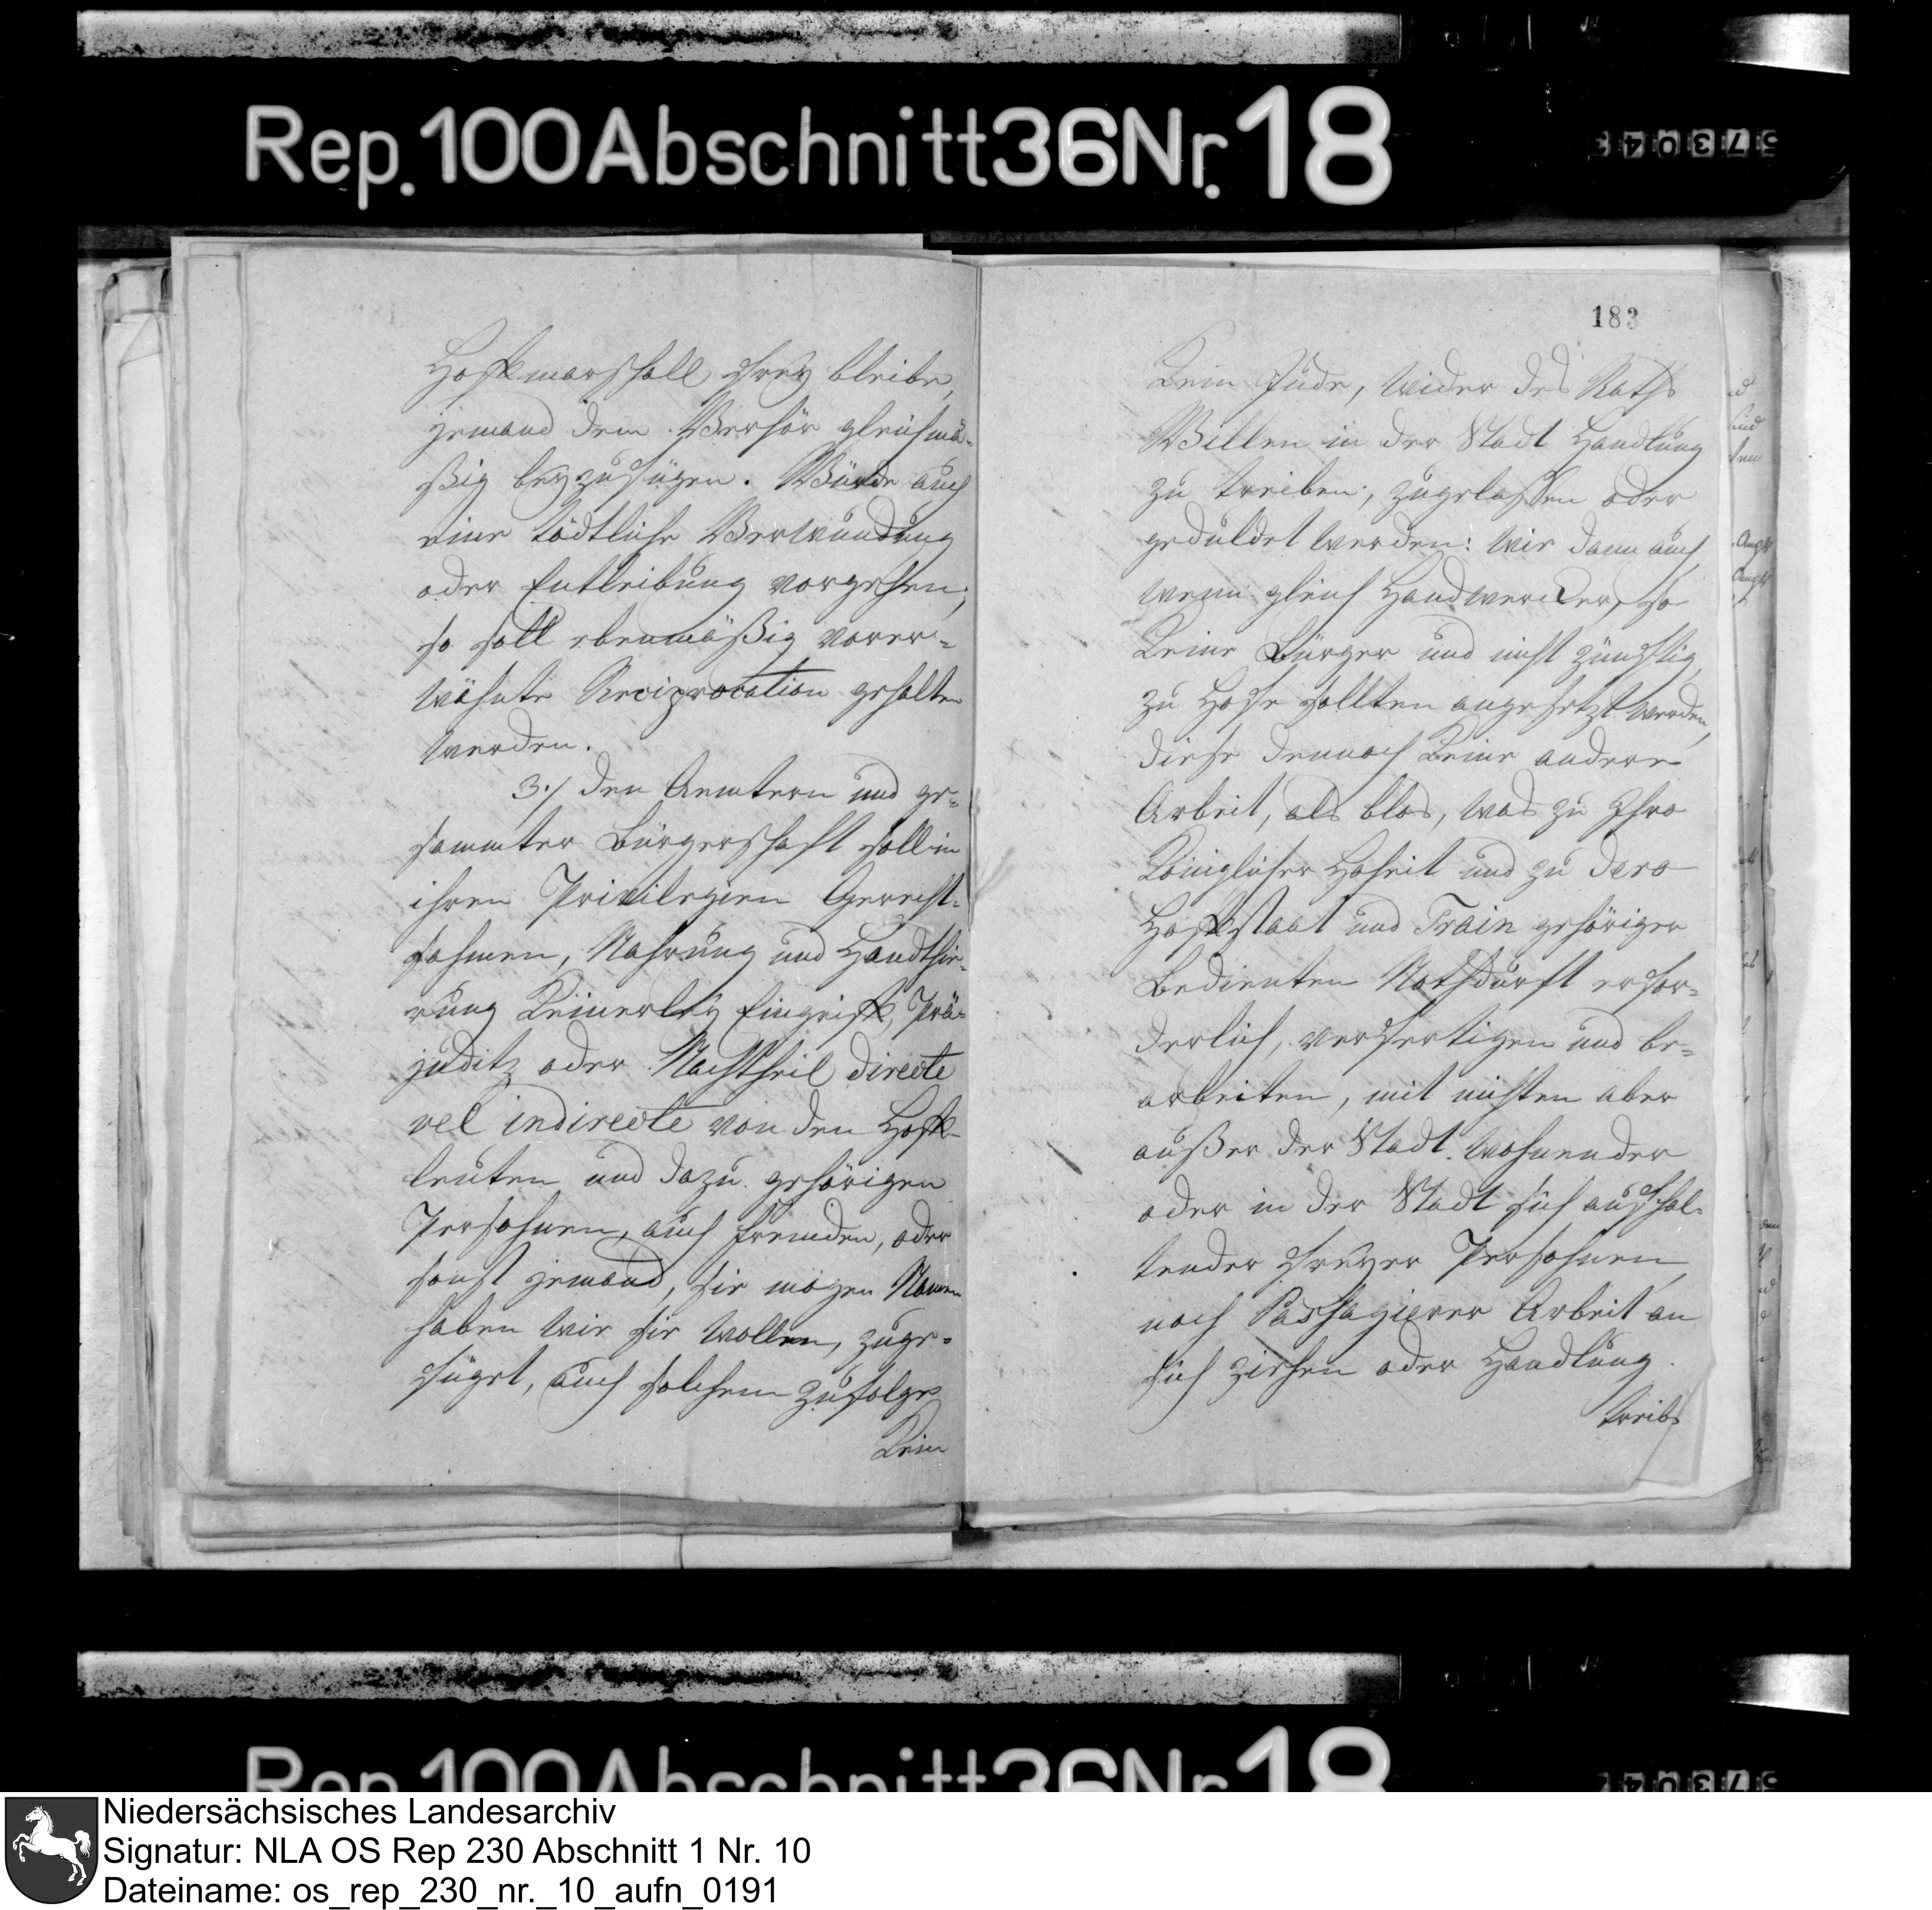 Rep. 100 Abschnitt 36 Nr. 18
573043
Hoffmarschall frey bleibe,
jemand dem Verhör gleichmä-
ßig beyzufügen. Würde auch
eine tödtliche Verwundung
oder Entleibung vorgehen,
so soll ebenmäßig vorer-
wähnte Reciprocation gehalten
werden.
3./ den Aemtern und ge-
sammter Bürgerschaft soll in
ihren Privilegien Gerecht-
sahmen, Nahrung und Handthie-
rung keinerley Eingriff, Prä-
juditz oder Nachtheil directe
vel indirecte von den Hoff-
leuten und dazu gehörigen
Persohnen, auch fremden, oder
sonst jemand, sie mögen Namen
haben wie sie wollen, zuge-
füget, auch solchem zufolge
Kein
183
Kein Jude, wider des Raths
Willen in der Stadt Handlung
zu treiben, zugelassen oder
geduldet werden: wie dann auch,
wenn gleich Handwercker, so
keine Bürger und nicht zünftig,
zu Hofe sollten angesetzt werden,
diese dennoch keine andere
Arbeit, als blos, was zu Ihro
Königlicher Hoheit und zu dero
Hoffstaat und Train gehöriger
Bedienten Nothdurft erfor-
derlich, verfertigen und be-
arbeiten, mit nichten aber
außer der Stadt wohnender
oder in der Stadt sich aufhal-
tender freyer Persohnen,
noch Passagierer Arbeit an
sich ziehen oder Handlung
treib
Rep. 100 Abschnitt 36 Nr. 18
Niedersächsisches Landesarchiv
Signatur: NLA OS Rep 230 Abschnitt 1 Nr. 10
Dateiname: os_rep_230_nr._10_aufn_0191